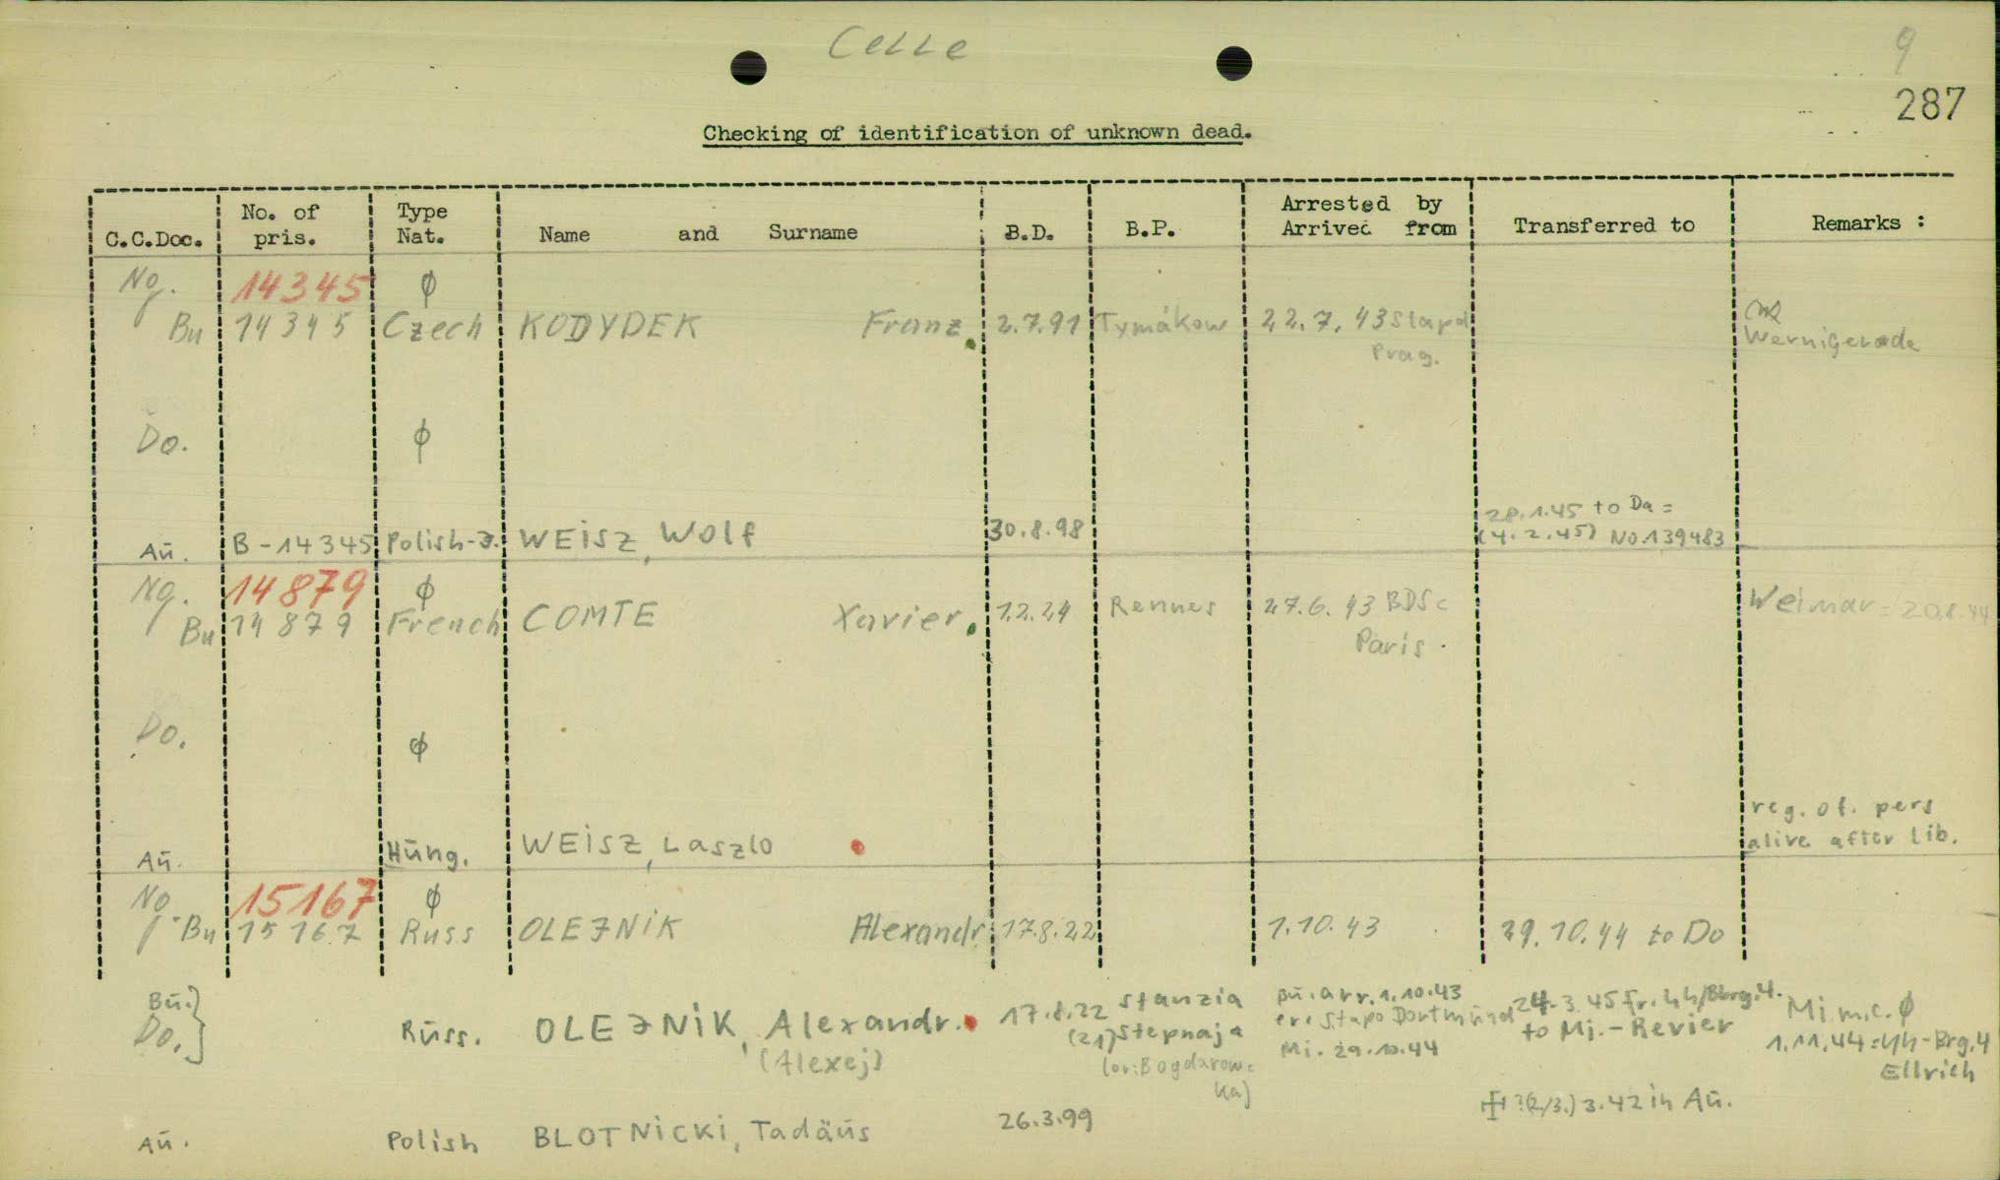 Celle
9
287
Checking of identification of unknown dead.
C.C.Doc. No. of pris. Type Nat. Name and Surname B.D. B.P. Arrested by Arrived from Transferred to Remarks :
Ng. 14345 ϕ
Bu 14345 Czech KODYDEK Franz. 2.7.91 Tymákow 22.7.43 Stapo Prag. Wernigerode
Do. ϕ
Aü. B-14345 Polish-J. WEISZ, Wolf 30.8.98 28.1.45 to Da = (4.2.45) No.139483
Ng. 14879 ϕ
Bu 14879 French COMTE Xavier. 1.2.24 Rennes 27.6.43 BDS c Paris. Weimar = 20.8.44
Do. ϕ
Aü. Hüng. WEISZ, Laszlo reg. of. pers alive after lib.
No 15167 ϕ
Bu 15167 Russ OLEJNIK Alexandr 17.8.22 1.10.43 29.10.44 to Do
Bü.} Do.} Rüss. OLEJNIK, Alexandr. (Alexej) 17.8.22 (21) Stanzia Stepnaja (or: Bogdarow= ka) Bü. arr. 1.10.43 Stapo Dortmünd Mi. 29.10.44 24.3.45 fr. 4h/Bbrg.4. to Mi.-Revier Mi m.c. ϕ 1.11.44 = 4h-Brg.4 Ellrich
Aü. Polish BLOTNICKI, Tadäüs 26.3.99 ? (2/3.) 3.42 in Aü.